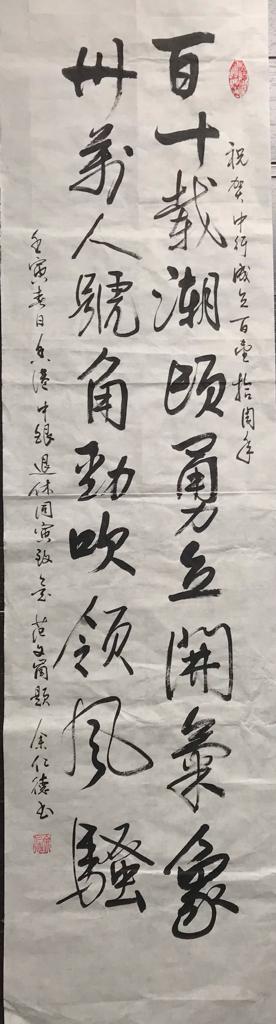 祝賀中行成立百壹拾周年
百十載潮頭勇立開氣象
卅萬人號角勁吹領風騷
壬寅春日香港中銀退休同寅致意 范文崗題 余仁德书